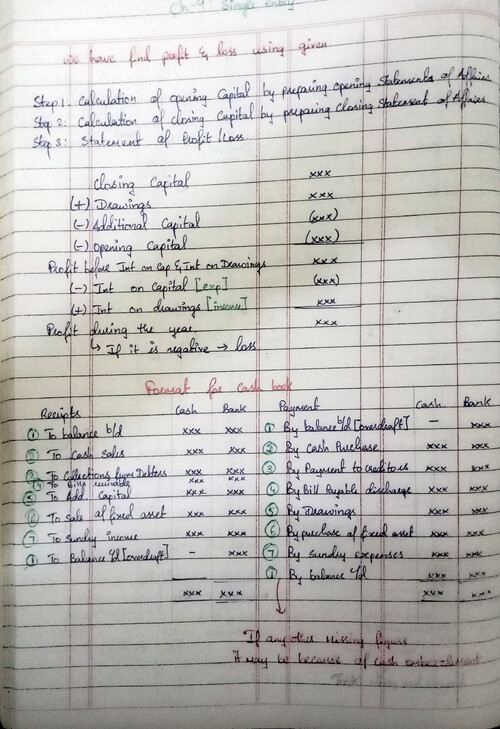 Ch-9: Single entry
we have find profit & loss using given
Step 1: Calculation of opening Capital by preparing opening Statements of Affairs
Step 2: Calculation of closing Capital by preparing closing Statement of Affairs
Step 3: Statement of Profit/Loss.
Closing Capital xxx
(+) Drawings xxx
(-) Additional Capital (xxx)
(-) Opening Capital (xxx)
Profit before Int on Cap & Int on Drawings xxx
(-) Int on Capital [exp] (xxx)
(+) Int on drawings [income] xxx
Profit during the year. xxx
↳ If it is negative → loss
Format for Cash book
Receipts Cash Bank Payment Cash Bank
① To balance b/d xxx xxx ① By balance b/d [overdraft] — xxx
② To Cash Sales xxx xxx ② By Cash Purchase xxx xxx
③ To Collections from Debtors xxx xxx ③ By Payment to creditors xxx xxx
④ To Bills receivable xxx xxx
⑤ To Add. Capital xxx xxx ④ By Bill Payable discharge xxx xxx
⑥ To Sale of fixed asset xxx xxx ⑤ By Drawings xxx xxx
⑦ To Sundry income xxx xxx ⑥ By purchase of fixed asset xxx xxx
① To Balance c/d [overdraft] - xxx ⑦ By Sundry expenses xxx xxx
① By balance c/d xxx xxx
xxx xxx xxx xxx
If any other Missing figure
It may be because of cash embezzlement